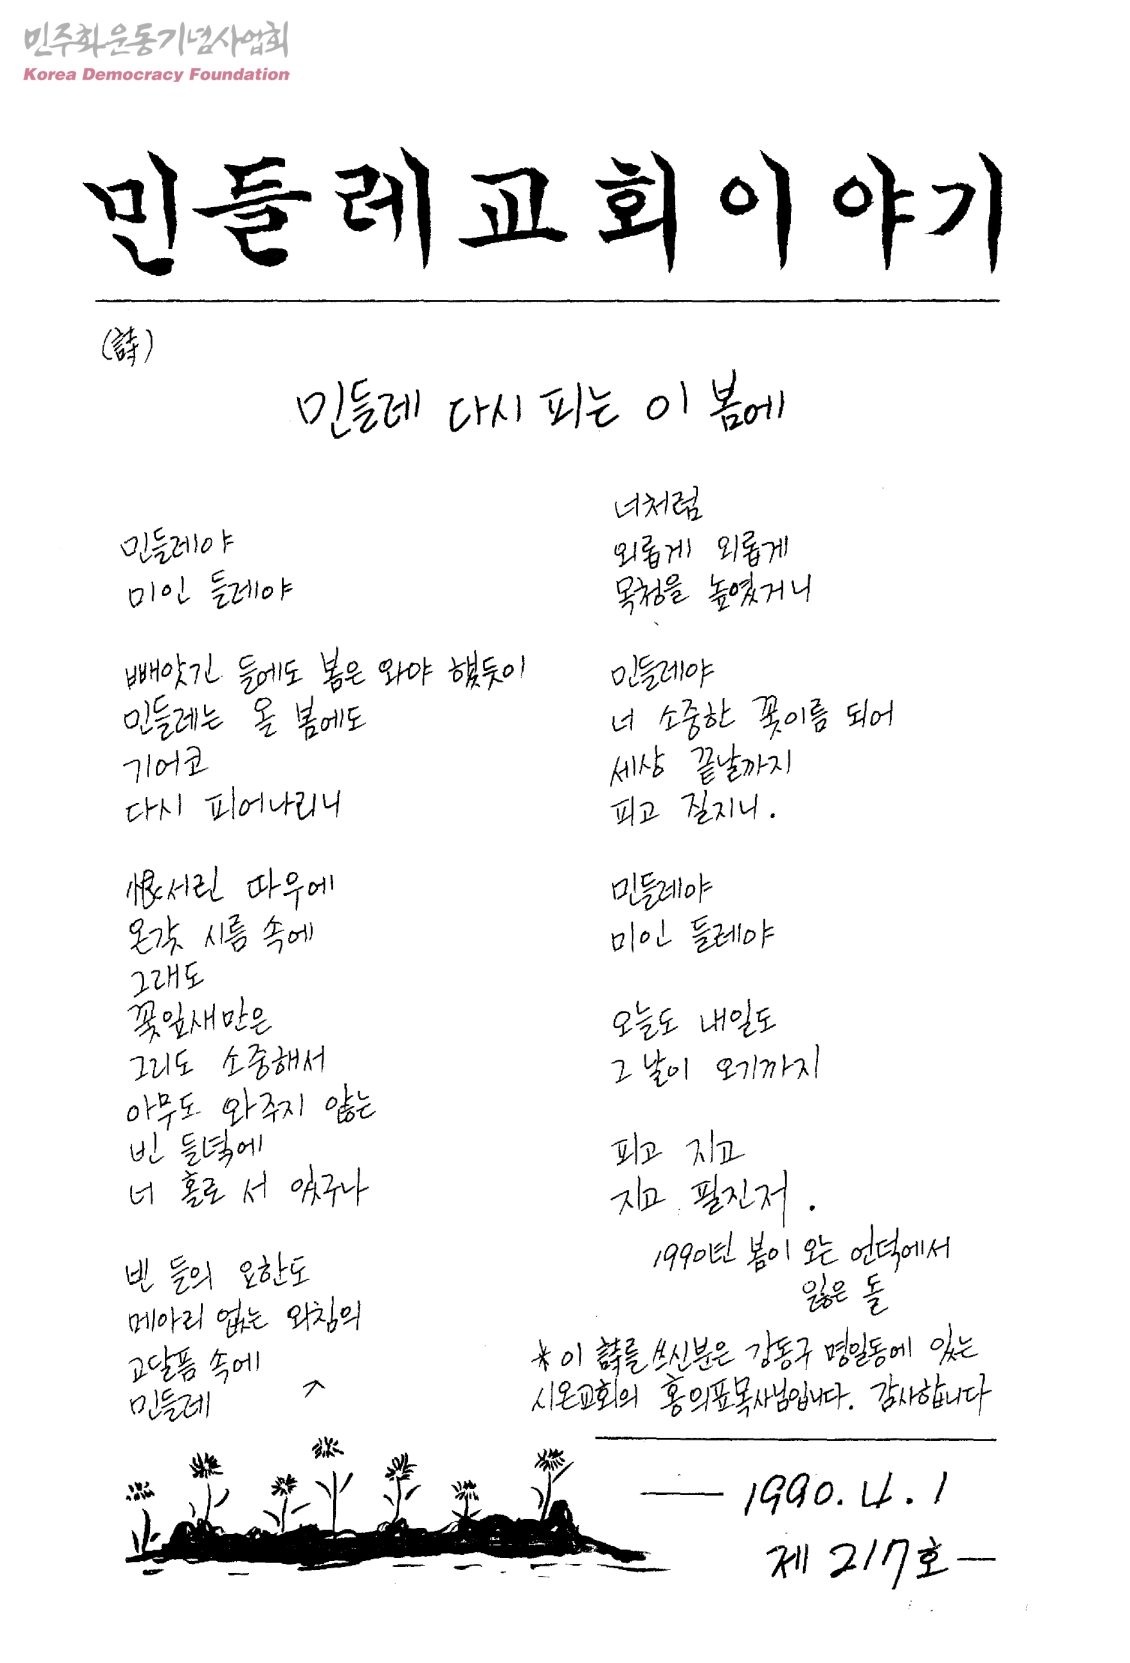 민주화운동기념사업회
Korea Democracy Foundation
민들레교회이야기
(詩)
민들레 다시 피는 이 봄에
민들레야
미인 들레야
빼앗긴 들에도 봄은 와야 했듯이
민들레는 올 봄에도
기어코
다시 피어나리니
恨서린 따우에
온갖 시름 속에
그래도
꽃잎새만은
그리도 소중해서
아무도 와주지 않는
빈 들녘에
너 홀로 서 있구나
빈 들의 요한도
메아리 없는 외침의
고달픔 속에
민들레
너처럼
외롭게 외롭게
목청을 높였거니
민들레야
너 소중한 꽃이름 되어
세상 끝날까지
피고 질지니.
민들레야
미인 들레야
오늘도 내일도
그 날이 오기까지
피고 지고
지고 필진저.
1990년 봄이 오는 언덕에서
잃은 돌
*이 詩를 쓰신분은 강동구 명일동에 있는
시온교회의 홍의표목사님입니다. 감사합니다
— 1990. 4. 1
제 217호 —